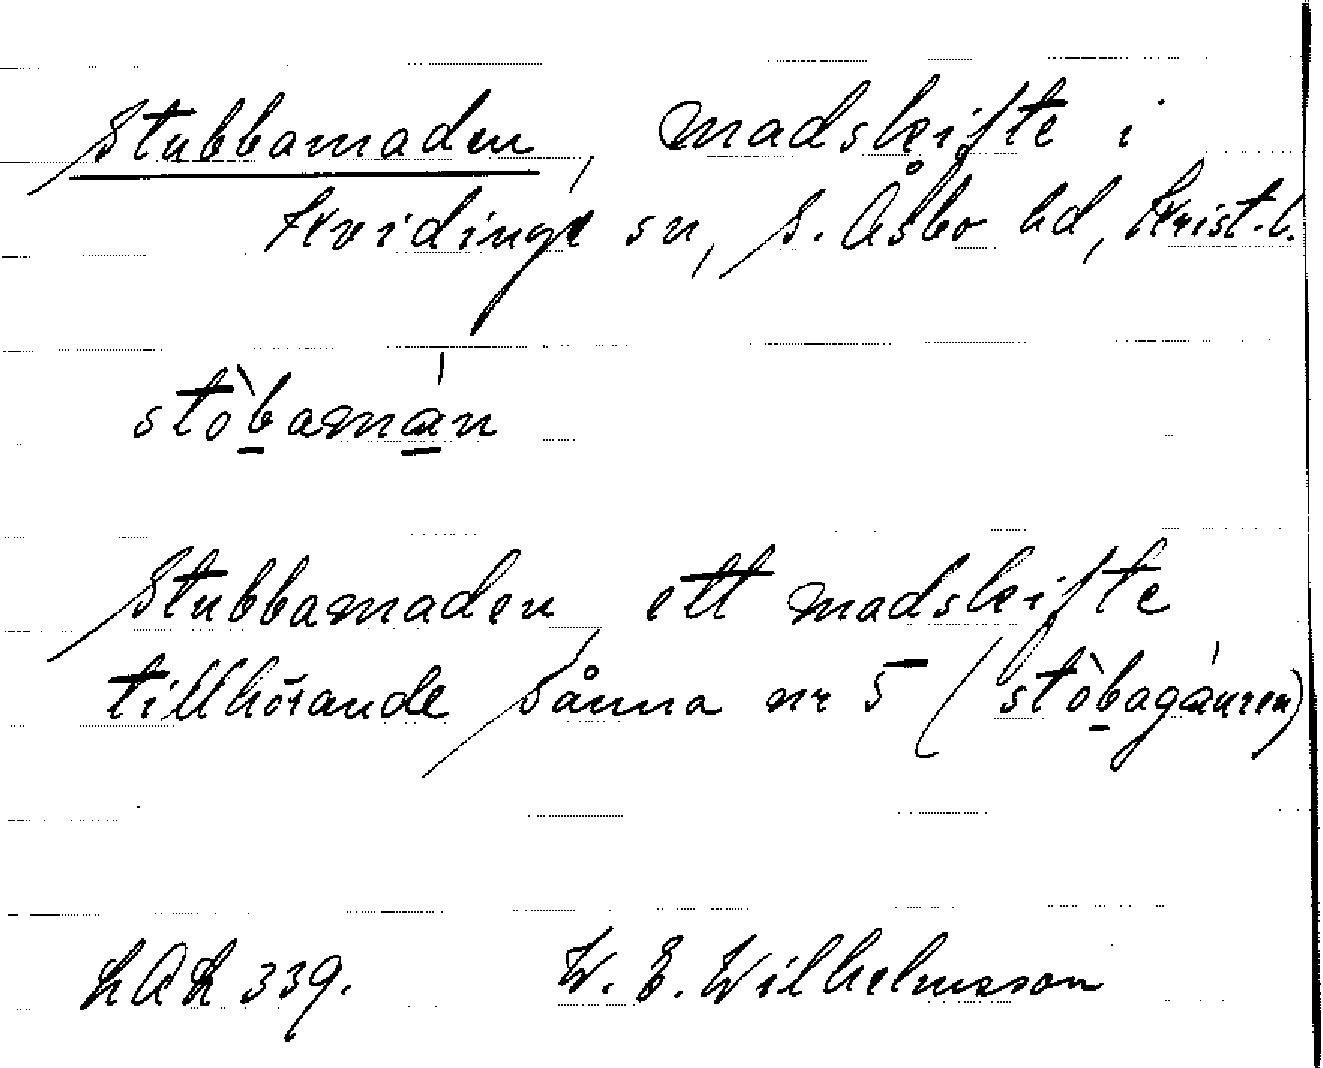 Stubbamaden, madskifte i
Kvidinge sn, S. Åsbo hd, Krist. l.
stòbamán
Stubbamaden, ett madskifte
tillhörande Sånna nr 5 (stòbagáuren)
LAL 339. W. E. Wilhelmsson